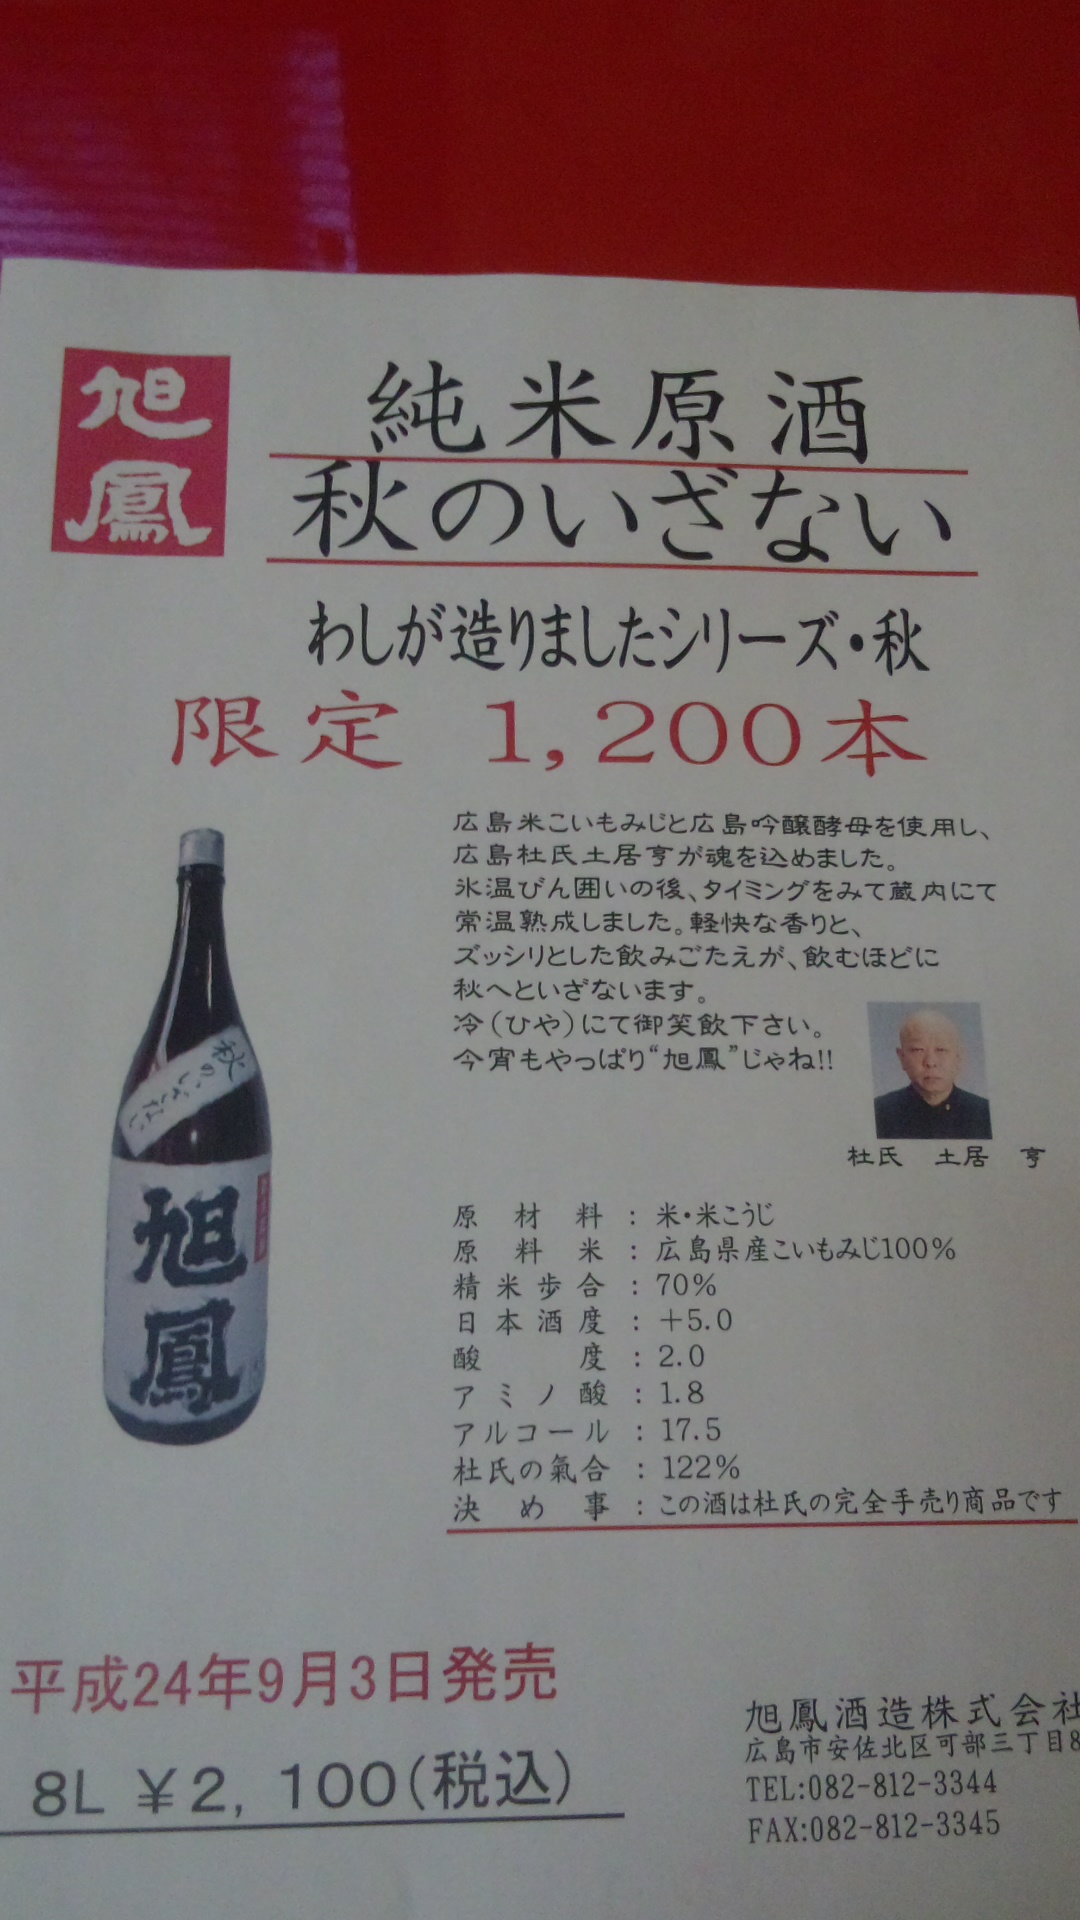 旭鳳
純米原酒
秋のいざない
わしが造りましたシリーズ・秋
限定 1,200本
広島米こいもみじと広島吟醸酵母を使用し、
広島杜氏土居亨が魂を込めました。
氷温びん囲いの後、タイミングをみて蔵内にて
常温熟成しました。軽快な香りと、
ズッシリとした飲みごたえが、飲むほどに
秋へといざないます。
冷(ひや)にて御笑飲下さい。
今宵もやっぱり“旭鳳”じゃね!!
杜氏 土居 亨
秋のいざない
旭鳳
原材料:米・米こうじ
原料米:広島県産こいもみじ100%
精米歩合:70%
日本酒度:+5.0
酸度:2.0
アミノ酸:1.8
アルコール:17.5
杜氏の氣合:122%
決め事:この酒は杜氏の完全手売り商品です
平成24年9月3日発売
8L ¥2,100(税込)
旭鳳酒造株式会社
広島市安佐北区可部三丁目8
TEL:082-812-3344
FAX:082-812-3345